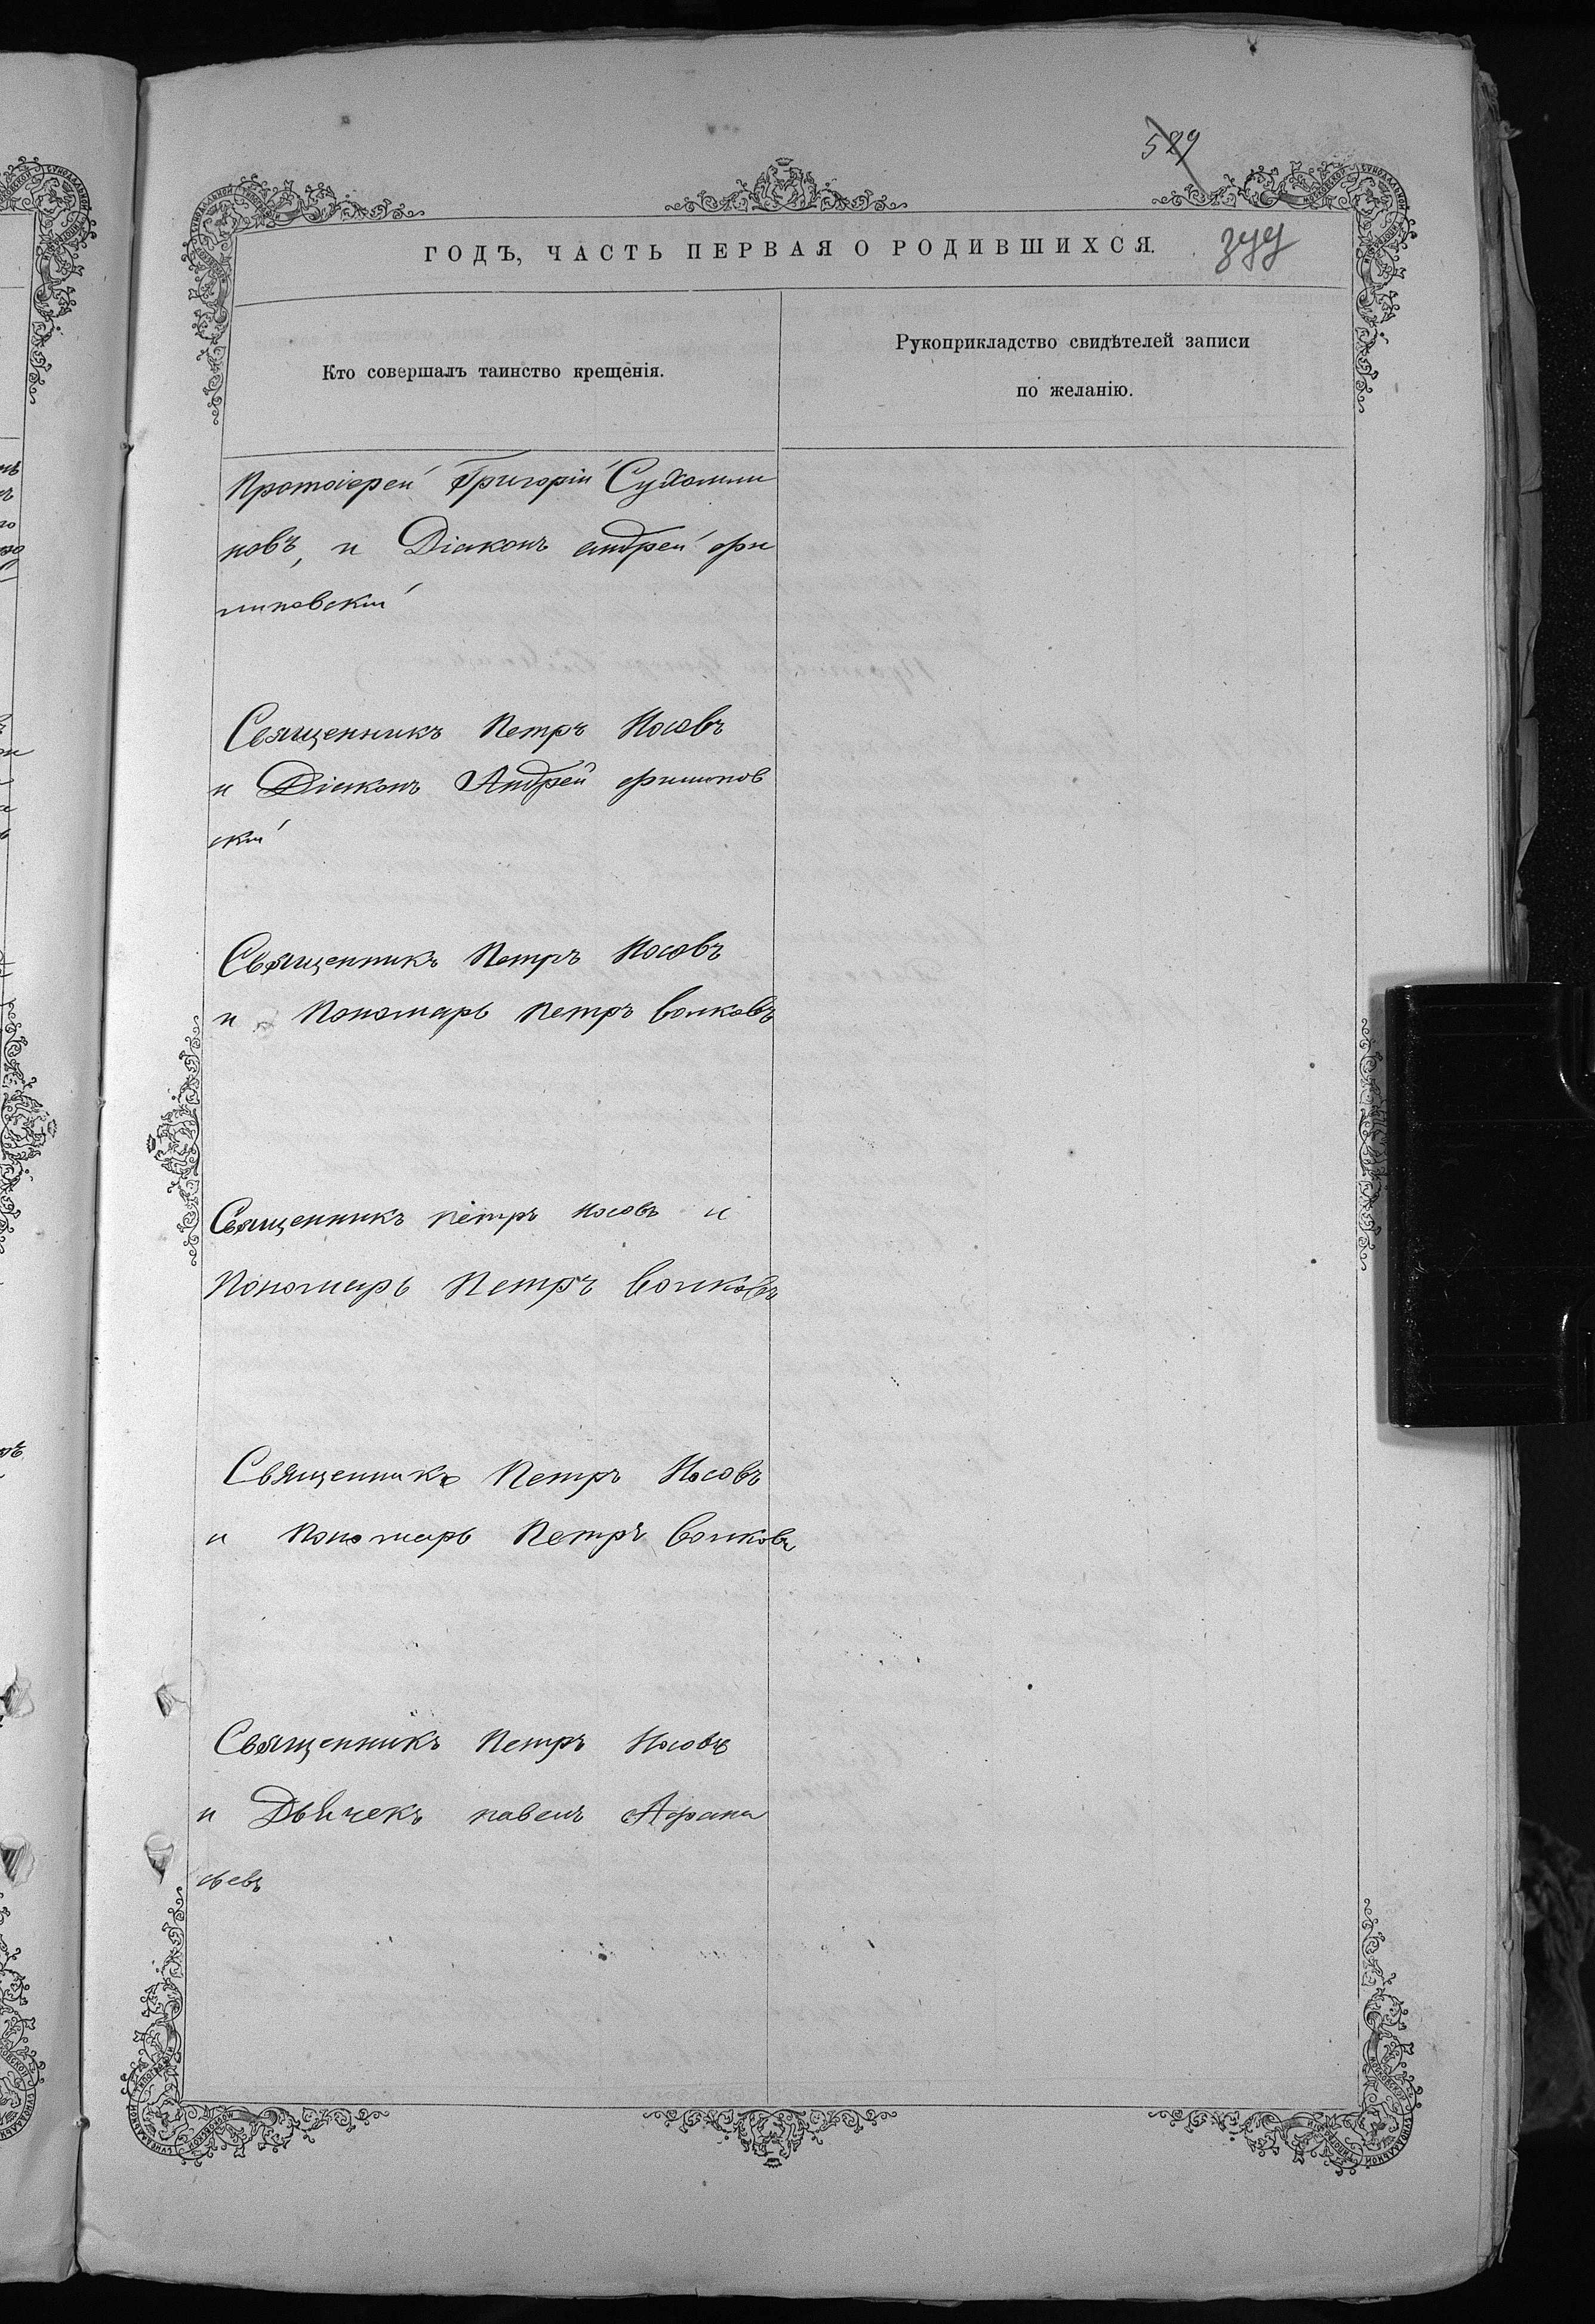 589
ГОДЪ, ЧАСТЬ ПЕРВАЯ О РОДИВШИХСЯ.
Кто совершалъ таинство крещенія.
Рукоприкладство свидѣтелей записи
по желанію.
Протоіерей Григорій Сухомли
новъ, и Діаконъ андрей фи
липовскій
Священникъ Петръ Носовъ
и Діаконъ Андрей филипов
скій
Священникъ Петръ Носовъ
и Пономарь Петръ волковъ
Священникъ петръ носовъ и
Пономарь Петръ волковъ
Священникъ Петръ Носовъ
и Пономарь Петръ волковъ
Священникъ Петръ Носовъ
и Дьячекъ павелъ Афана
сьевъ